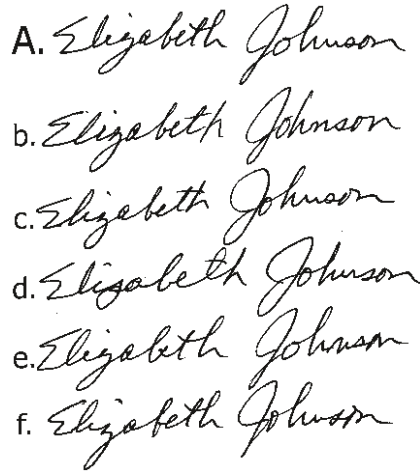 A. Elizabeth Johnson
b. Elizabeth Johnson
c. Elizabeth Johnson
d. Elizabeth Johnson
e. Elizabeth Johnson
f. Elizabeth Johnson